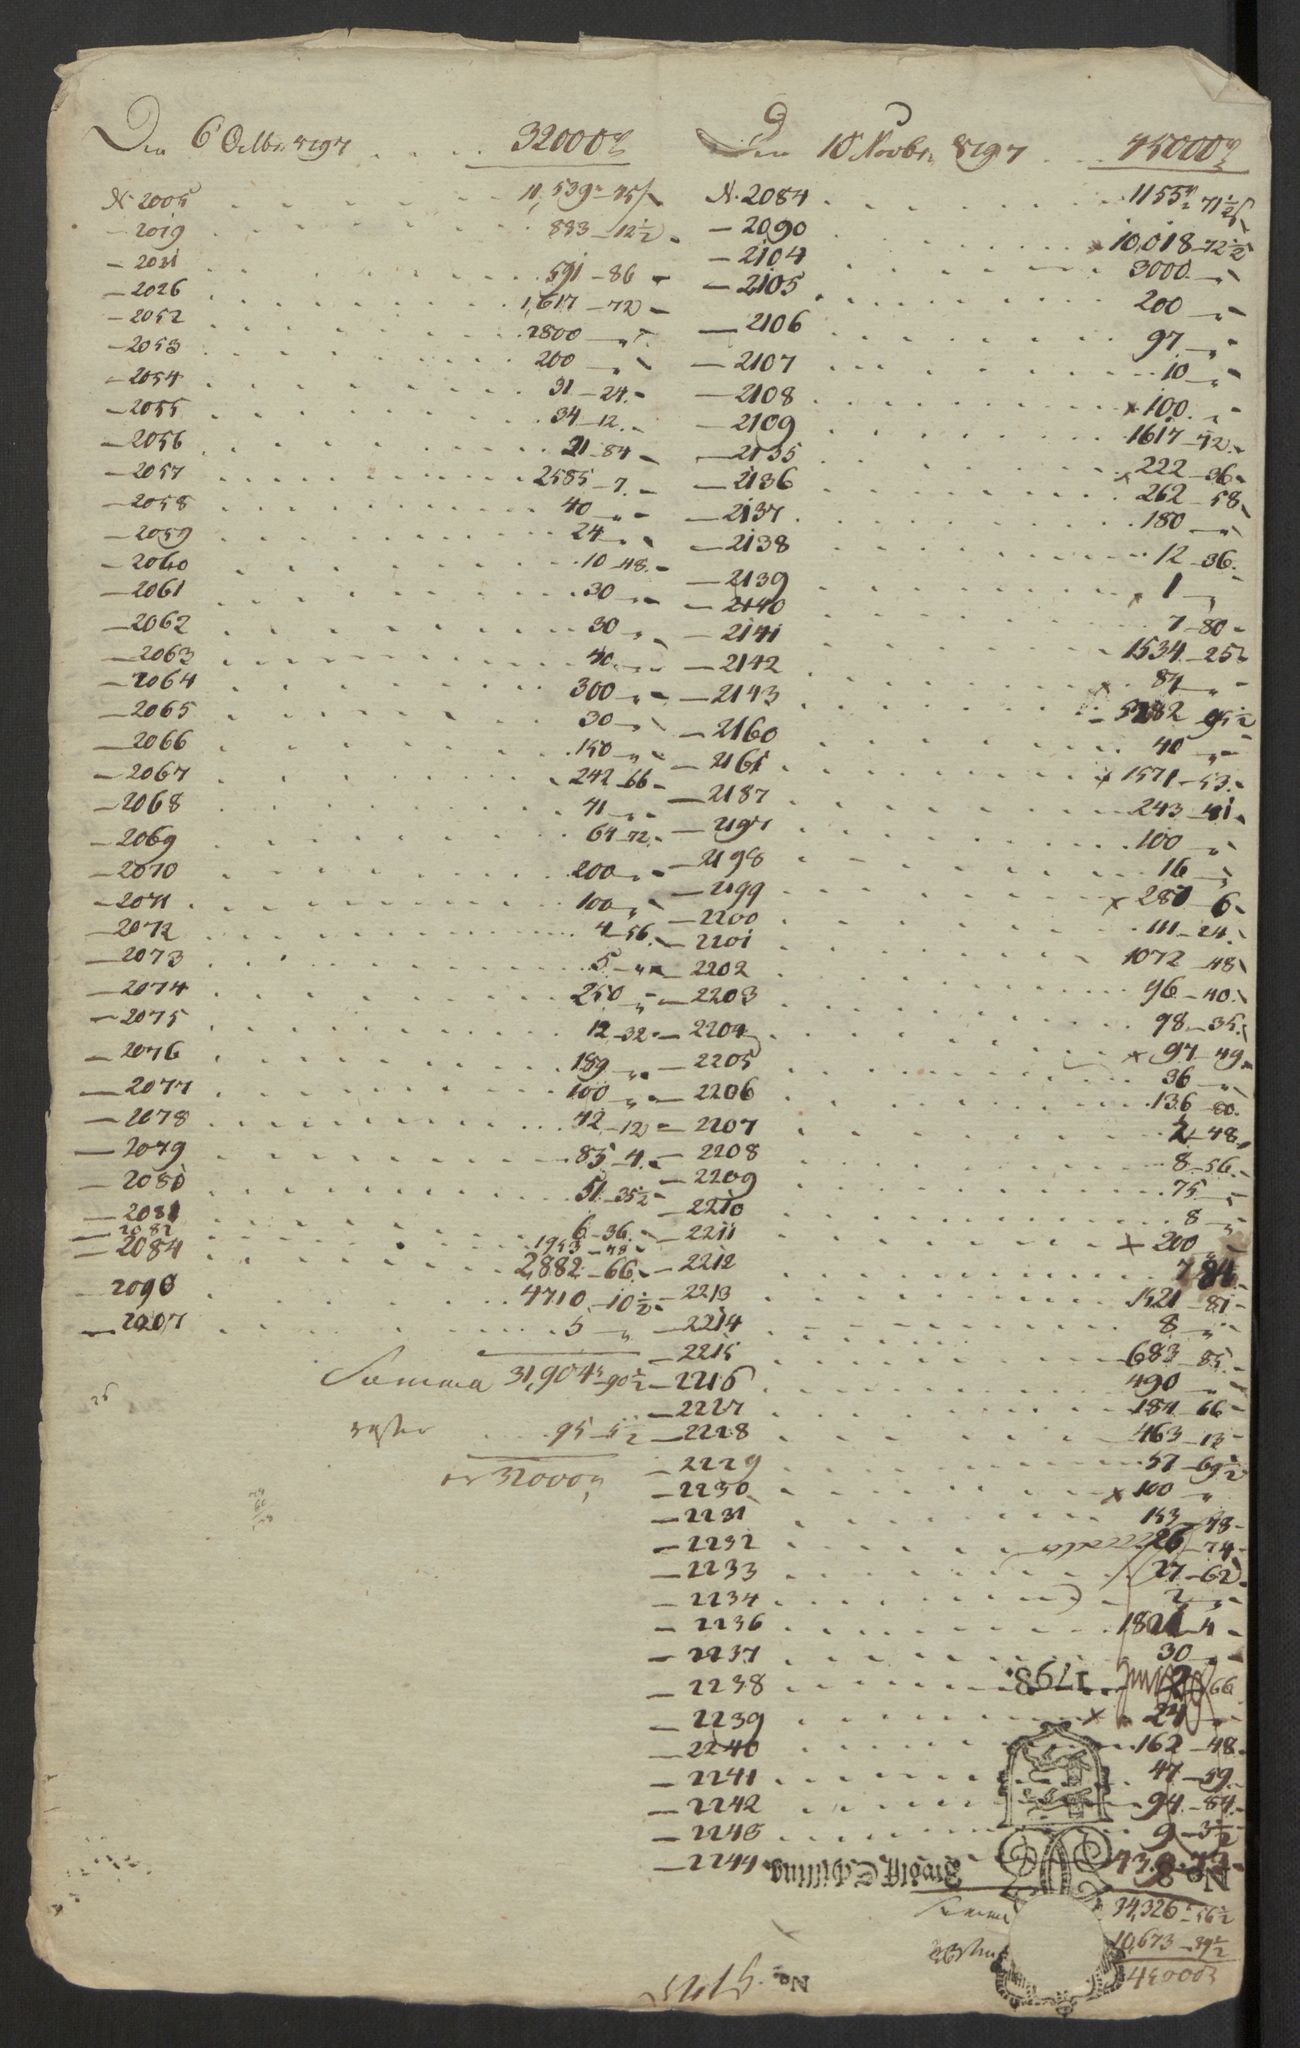 Den 6 Octbr 1797 . . . . 32000
N 2005 . . . 11,539 - 75
- 2019 . . . 883 - 12 1/2
- 2021 . . . 591 - 86
- 2026 . . . 1,617 - 72
- 2052 . . . 2800 - "
- 2053 . . . 200 - "
- 2054 . . . 31 - 24
- 2055 . . . 34 - 12
- 2056 . . . 21 - 84
- 2057 . . . 2585 - 7
- 2058 . . . 40 - "
- 2059 . . . 24 - "
- 2060 . . . 10 - 48
- 2061 . . . 30 - "
- 2062 . . . 30 - "
- 2063 . . . 40 - "
- 2064 . . . 300 - "
- 2065 . . . 30 - "
- 2066 . . . 150 - "
- 2067 . . . 242 - 66
- 2068 . . . 41 - "
- 2069 . . . 64 - 72
- 2070 . . . 200 - "
- 2071 . . . 100 - "
- 2072 . . . 4 - 56
- 2073 . . . 5 - "
- 2074 . . . 250 - "
- 2075 . . . 12 - 32
- 2076 . . . 189 - "
- 2077 . . . 100 - "
- 2078 . . . 42 - 12
- 2079 . . . 85 - 4
- 2080 . . . 51 - 35 1/2
- 2081 . . . 6 - 36
- 2082 . . . 1953 - 48
- 2084 . . . 2,882 - 66
- 2090 . . . 4710 - 10 1/2
- 2207 . . . 5 - "
Summa 31,904 - 90 1/2
rester 95 - 5 1/2
32000
Den 10 Novbr 1797 . . . 45000
N. 2084 . . . 1155 - 71 1/2
- 2090 . . . 10,018 - 72 1/2
- 2104 . . . 3000 - "
- 2105 . . . 200 - "
- 2106 . . . 97 - "
- 2107 . . . 10 - "
- 2108 . . . x 100 - "
- 2109 . . . 1617 - 72
- 2135 . . . 222 - 36
- 2136 . . . x 262 - 58
- 2137 . . . 180 - "
- 2138 . . . 12 - 36
- 2139 . . . x 1 - "
- 2140 . . . 7 - 80
- 2141 . . . 1534 - 25
- 2142 . . . x 84 - "
- 2143 . . . 5282 - 95 1/2
- 2160 . . . 40 - "
- 2161 . . . x 1571 - 53
- 2187 . . . 243 - 41
- 2197 . . . 100 - "
- 2198 . . . 16 - "
- 2199 . . . x 281 - 6
- 2200 . . . 111 - 24
- 2201 . . . 1072 - 48
- 2202 . . . 96 - 40
- 2203 . . . 98 - 35
- 2204 . . . x 97 - 49
- 2205 . . . 36 - "
- 2206 . . . 136 - 80
- 2207 . . . 2 - 48
- 2208 . . . 8 - 56
- 2209 . . . 75 - "
- 2210 . . . 8 - "
- 2211 . . . x 200 - "
- 2212 . . . 7 84
- 2213 . . . 1521 - 81
- 2214 . . . 8 - "
- 2215 . . . 683 - 85
- 2216 . . . 490 - "
- 2227 . . . 184 - 66
- 2228 . . . 463 - 12
- 2229 . . . 57 - 69 1/2
- 2230 . . . x 100 - "
- 2231 . . . 153 - 48
- 2232 . . . 26 - 74
- 2233 . . . 27 - 62
- 2234 . . . 2 - "
- 2236 . . . 1821 - 4
- 2237 . . . 30 - "
- 2238 . . . 66
1798.
- 2239 . . . x 24 - "
- 2240 . . . 162 - 48
- 2241 . . . 47 - 59
- 2242 . . . 94 - 84
- 2243 . . . 9 - 3 1/2
- 2244 . . . 439 - 72
No. 8 Zwölff Schilling
Summa 34,326 - 56 1/2
10,673 - 39 1/2
45000
No.